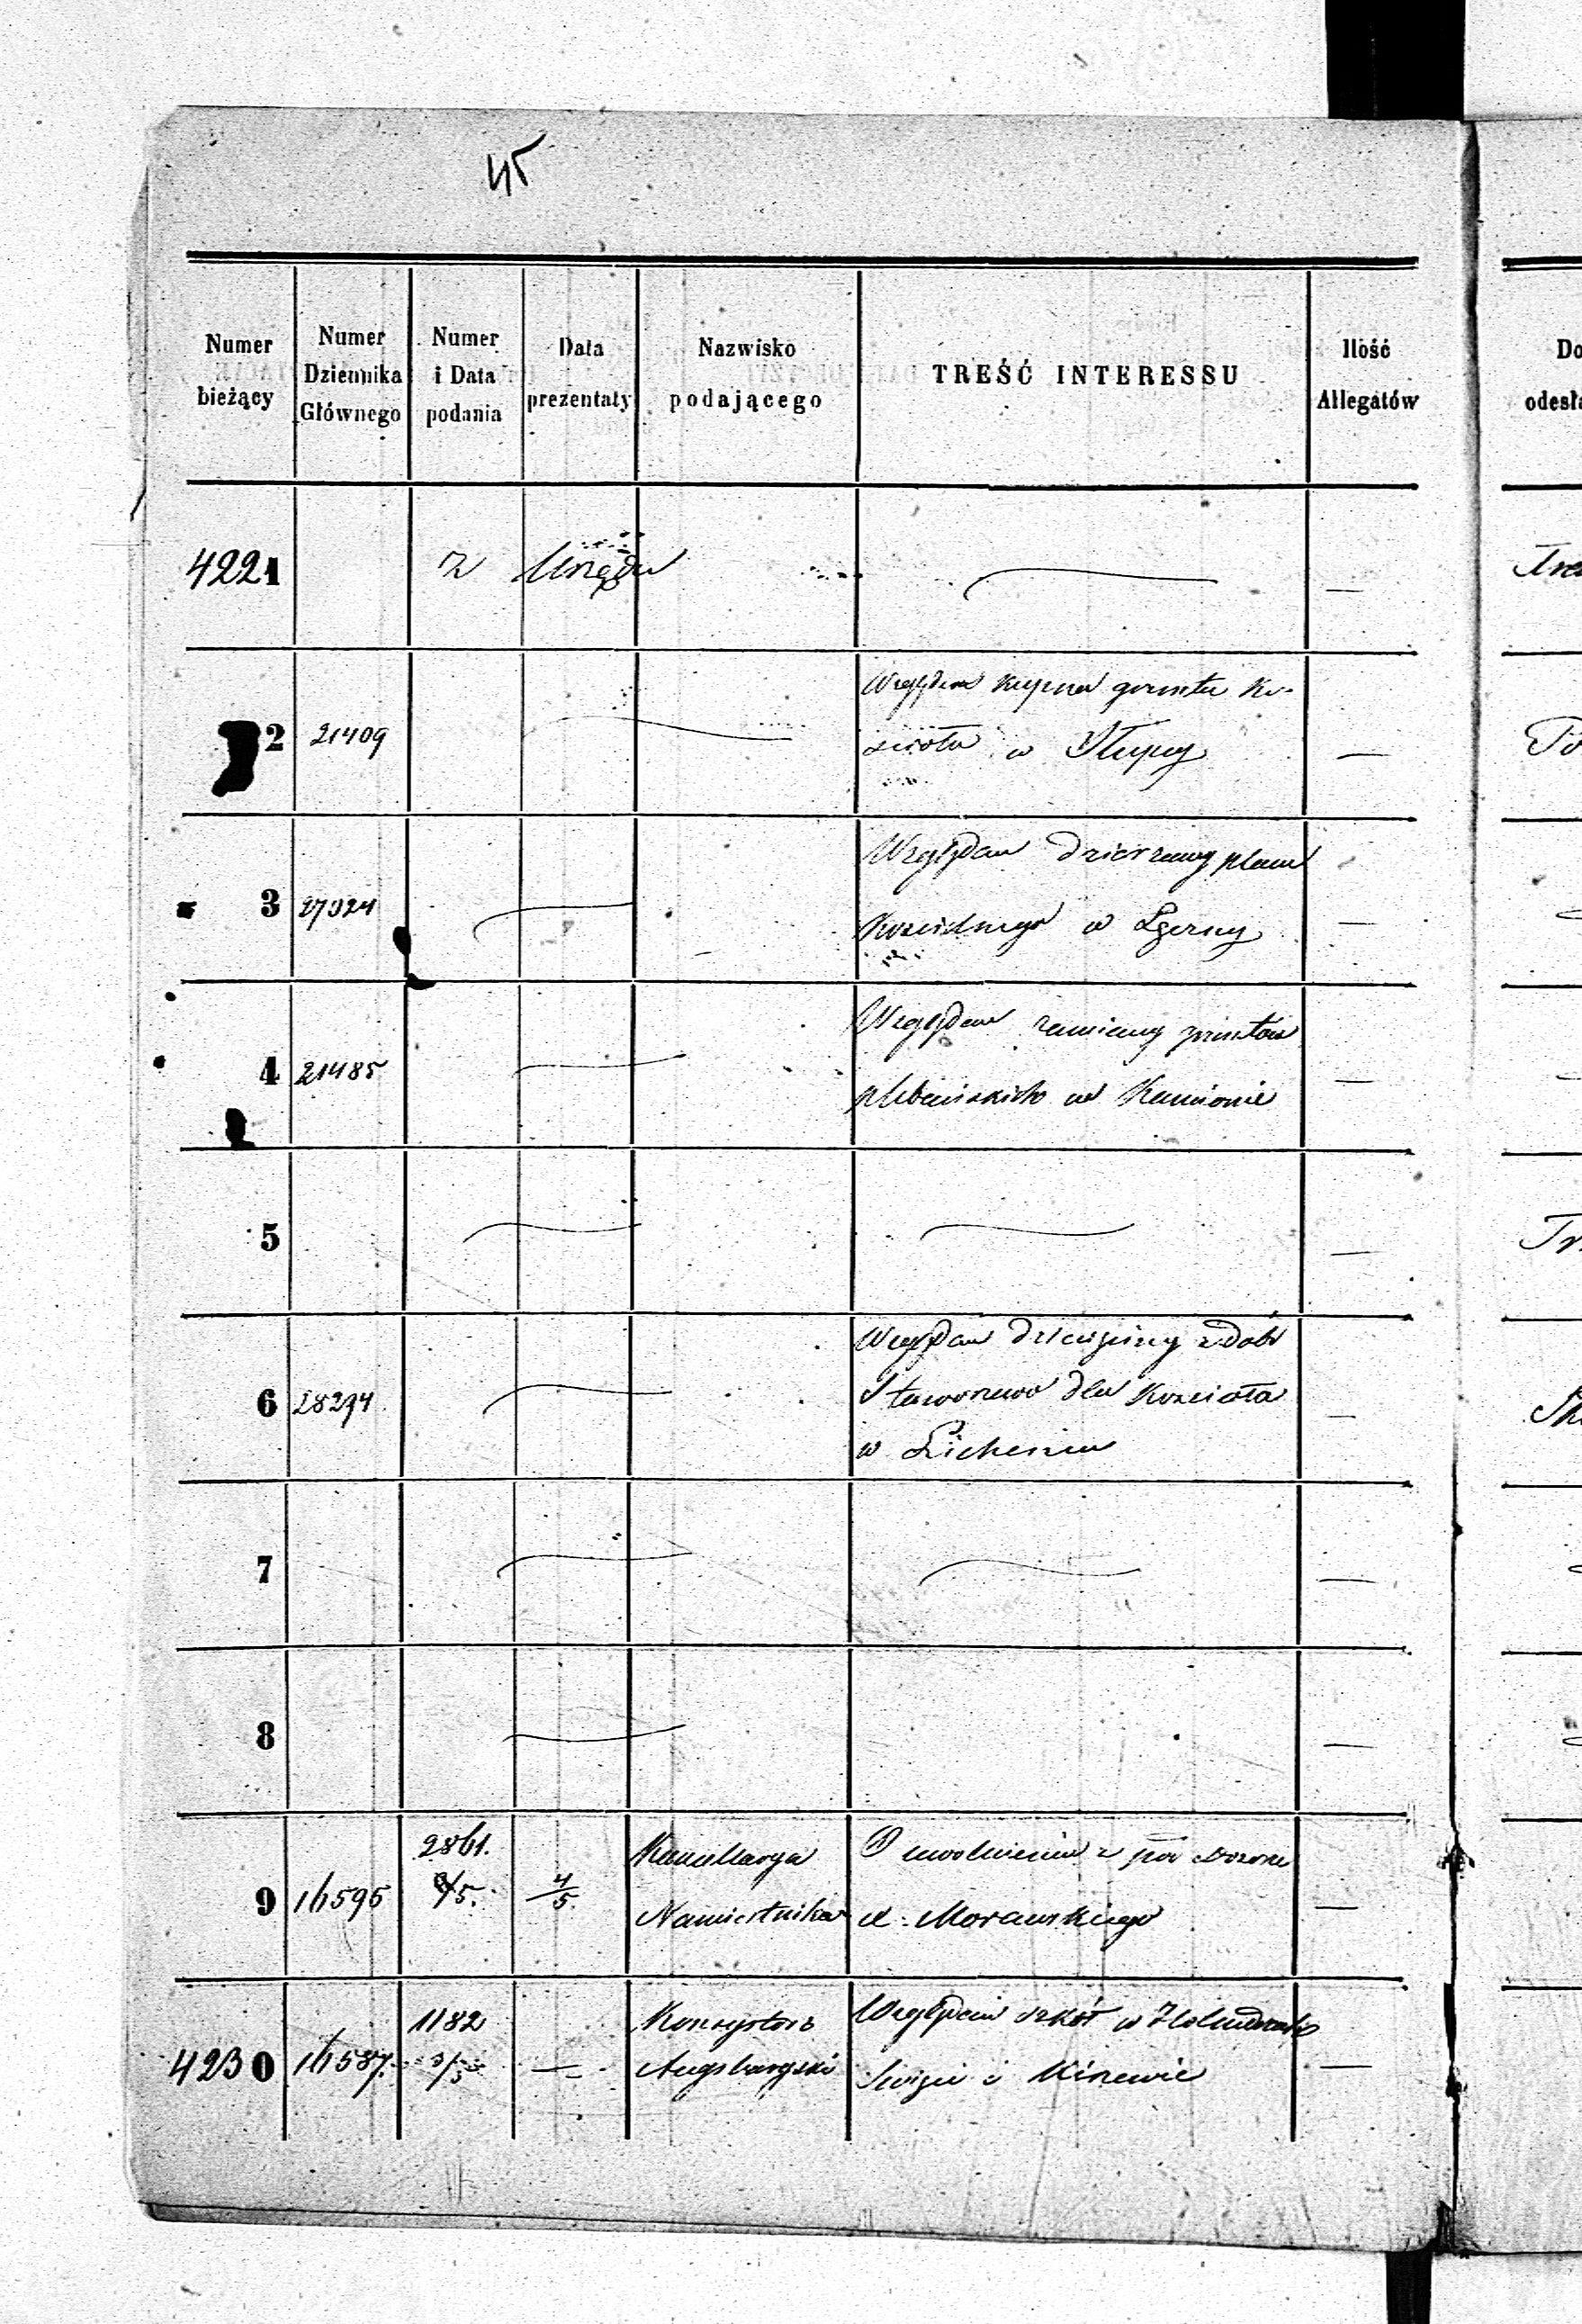 45
Numer bieżący
Numer Dziennika Głównego
Numer i Data podania
Data prezentaty
Nazwisko podającego
TREŚĆ INTERESSU
Ilość Allegatów
Do
odesła
4221 z Urzędu —
2 21409 Względem kupna gruntu Ko-
ścioła w Słupcy —
3 27024 Względem dzierzawy placu
Kościelnego w Zgierzu —
4 21485 Względem zamiany gruntów
plebańskich we Kamionie —
5 —
6 28294 Względem dziesięciny z dóbr
dla Kościoła
w Licheniu —
7 —
8 —
9 16595 2861. /5. 4/5 Kancellarya
Namiestnika
O uwolnienie z pod dozoru
X. Morawskiego —
4230 16587. 1182 3/5 — Konsystorz
Augsburgski
Względem szkół w
i —